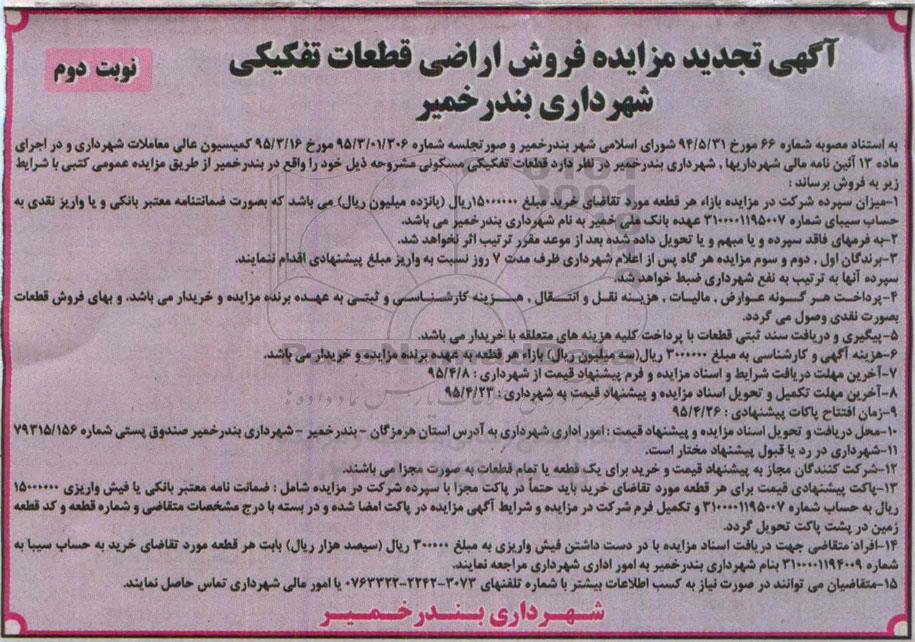 آگهی تجدید مزایده فروش اراضی قطعات تفکیکی
شهرداری بندرخمیر
نوبت دوم
به استناد مصوبه شماره ۶۶ مورخ ۹۴/۵/۳۱ شورای اسلامی شهر بندرخمیر و صورتجلسه شماره ۹۵/۳/۰۱/۳۰۶ مورخ ۹۵/۳/۱۶ کمیسیون عالی معاملات شهرداری و در اجرای
ماده ۱۳ آئین نامه مالی شهرداریها , شهرداری بندرخمیر در نظر دارد قطعات تفکیکی مسکونی مشروحه ذیل خود را واقع در بندرخمیر از طریق مزایده عمومی کتبی با شرایط
زیر به فروش برساند :
۱-میزان سپرده شرکت در مزایده بازاء هر قطعه مورد تقاضای خرید مبلغ ۱۵۰۰۰۰۰۰ریال (پانزده میلیون ریال) می باشد که بصورت ضمانتنامه معتبر بانکی و یا واریز نقدی به
حساب سیبای شماره ۳۱۰۰۰۰۱۱۹۵۰۰۷ عهده بانک ملی خمیر به نام شهرداری بندرخمیر می باشد.
۲-به فرمهای فاقد سپرده و یا مبهم و یا تحویل داده شده بعد از موعد مقرر ترتیب اثر نخواهد شد.
۳-برندگان اول , دوم و سوم مزایده هر گاه پس از اعلام شهرداری ظرف مدت ۷ روز نسبت به واریز مبلغ پیشنهادی اقدام ننمایند.
سپرده آنها به ترتیب به نفع شهرداری ضبط خواهد شد.
۴-پرداخت هر گونه عوارض , مالیات , هزینه نقل و انتقال , هزینه کارشناسی و ثبتی به عهده برنده مزایده و خریدار می باشد. و بهای فروش قطعات
بصورت نقدی وصول می گردد.
۵-پیگیری و دریافت سند ثبتی قطعات با پرداخت کلیه هزینه های متعلقه با خریدار می باشد.
۶-هزینه آگهی و کارشناسی به مبلغ ۳۰۰۰۰۰۰ ریال(سه میلیون ریال) بازاء هر قطعه به عهده برنده مزایده و خریدار می باشد.
۷-آخرین مهلت دریافت شرایط و اسناد مزایده و فرم پیشنهاد قیمت از شهرداری : ۹۵/۴/۸
۸-آخرین مهلت تکمیل و تحویل اسناد مزایده و پیشنهاد قیمت به شهرداری : ۹۵/۴/۲۳
۹-زمان افتتاح پاکات پیشنهادی : ۹۵/۴/۲۶
۱۰-محل دریافت و تحویل اسناد مزایده و پیشنهاد قیمت : امور اداری شهرداری به آدرس استان هرمزگان - بندرخمیر - شهرداری بندرخمیر صندوق پستی شماره ۷۹۳۱۵/۱۵۶
۱۱-شهرداری در رد یا قبول پیشنهاد مختار است.
۱۲-شرکت کنندگان مجاز به پیشنهاد قیمت و خرید برای یک قطعه یا تمام قطعات به صورت مجزا می باشند.
۱۳-پاکت پیشنهادی قیمت برای هر قطعه مورد تقاضای خرید باید حتماً در پاکت مجزا با سپرده شرکت در مزایده شامل : ضمانت نامه معتبر بانکی یا فیش واریزی ۱۵۰۰۰۰۰۰
ریال به حساب شماره ۳۱۰۰۰۰۱۱۹۵۰۰۷ و تکمیل فرم شرکت در مزایده و شرایط آگهی مزایده در پاکت امضا شده و در بسته با درج مشخصات متقاضی و شماره قطعه و کد قطعه
زمین در پشت پاکت تحویل گردد.
۱۴-افراد متقاضی جهت دریافت اسناد مزایده با در دست داشتن فیش واریزی به مبلغ ۳۰۰۰۰۰ ریال (سیصد هزار ریال) بابت هر قطعه مورد تقاضای خرید به حساب سیبا به
شماره ۳۱۰۰۰۰۱۱۹۴۰۰۹ بنام شهرداری بندرخمیر به امور اداری شهرداری مراجعه نمایند.
۱۵-متقاضیان می توانند در صورت نیاز به کسب اطلاعات بیشتر با شماره تلفنهای ۳۰۷۳-۲۲۴۲-۰۷۶۳۳۲۲ یا امور مالی شهرداری تماس حاصل نمایند.
شهرداری بندرخمیر